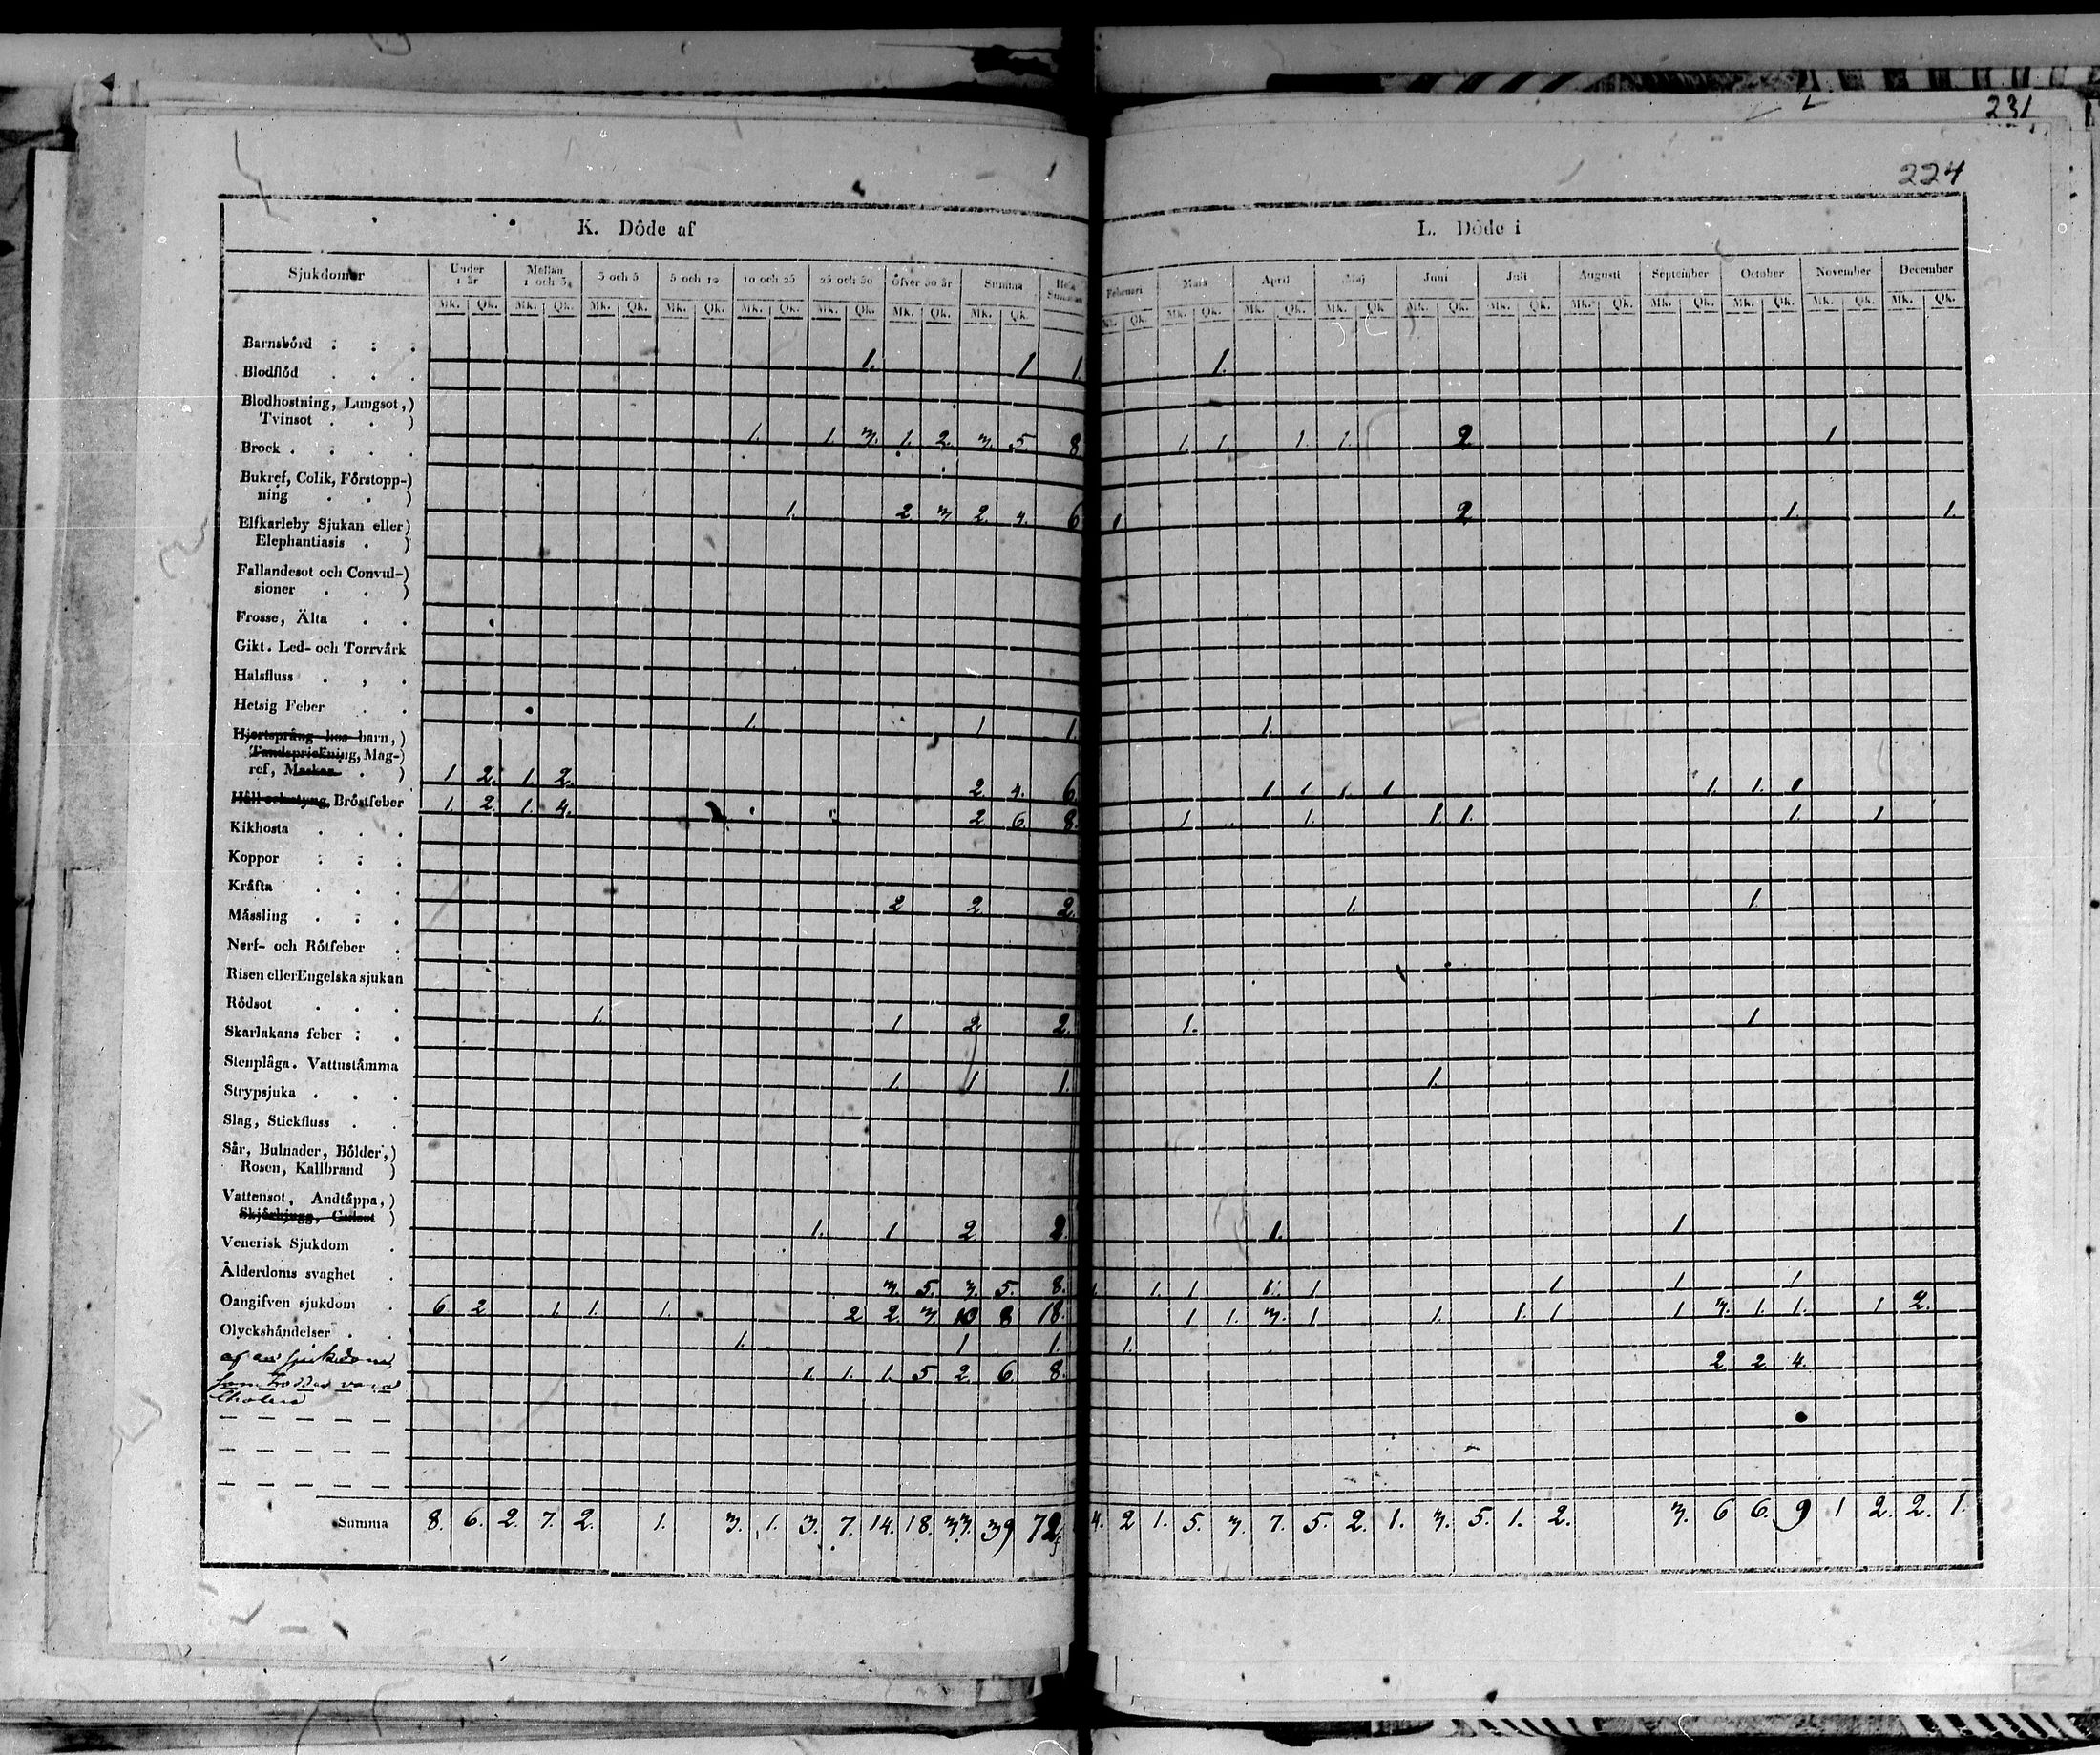 231
224
K. Döde af
L. Döde i
Sjukdomar Under 1 år Mellan 1 och 3 3 och 5 5 och 10 10 och 25 25 och 50 öfver 50 år Summa Hela Summan Februari Mars April Maj Juni Juli Augusti September October November December
Mk. Qk. Mk. Qk. Mk. Qk. Mk. Qk. Mk. Qk. Mk. Qk. Mk. Qk. Mk. Qk. Mk. Qk. Mk. Qk. Mk. Qk. Mk. Qk. Mk. Qk. Mk. Qk. Mk. Qk. Mk. Qk. Mk. Qk. Mk. Qk. Mk. Qk.
Barnsbörd
1. 1 1. 1.
Blodflöd
Blodhostning, Lungsot,)
Tvinsot )
1. 1. 3. 1. 2. 3. 5. 8 1. 1. 1. 1. 2 1
Brock
Bukref, Colik, Förstopp-)
ning )
1. 2 3 2. 4. 6 1. 2 1. 1.
Elfkarleby Sjukan eller)
Elephantiasis )
Fallandesot och Convul-)
sioner )
Frosse, Älta
Gikt. Led- och Torrvärk
Halsfluss
Hetsig Feber
1. 1 1. 1.
Hjertsprång hos barn, )
Tandsprickning, Mag-)
ref, Maskar )
1. 2. 1. 2. 2 4. 6. 1 1 1. 1 1. 1. 1
Håll och styng, Bröstfeber
1. 2. 1. 4. 2 6. 8. 1 1. 1 1. 1. 1
Kikhosta
Koppor
Kräfta
2 2 2. 1. 1
Mässling
Nerf- och Rötfeber
Risen eller Engelska sjukan
Rödsot
1. 1 2 2. 1. 1
Skarlakans feber
Stenplåga. Vattustämma
1. 1 1. 1.
Strypsjuka
Slag, Stickfluss
Sår, Bulnader, Bölder,)
Rosen, Kallbrand )
Vattensot, Andtäppa, )
Skjörbjugg, Gulsot )
1. 1 2 2. 1. 1
Venerisk Sjukdom
Ålderdoms svaghet
3. 5. 3. 5. 8. 1. 1. 1 1. 1 1 1 1
Oangifven sjukdom
6 2 1. 1. 1. 2 2. 3 10 8 18. 1 1. 3. 1 1. 1. 1 1 3. 1. 1. 1. 2.
Olyckshändelser
1. 1 1. 1.
af en sjukdom
1. 1. 1. 5. 2. 6. 8. 2 2. 4.
som troddes vara
Cholera
Summa 8. 6. 2. 7. 2. 1. 3. 1. 3. 7. 14. 18. 33. 39 72 4. 2 1. 5. 3. 7. 5. 2. 1. 3. 5. 1. 2. 3. 6 6. 9 1 2. 2. 1.